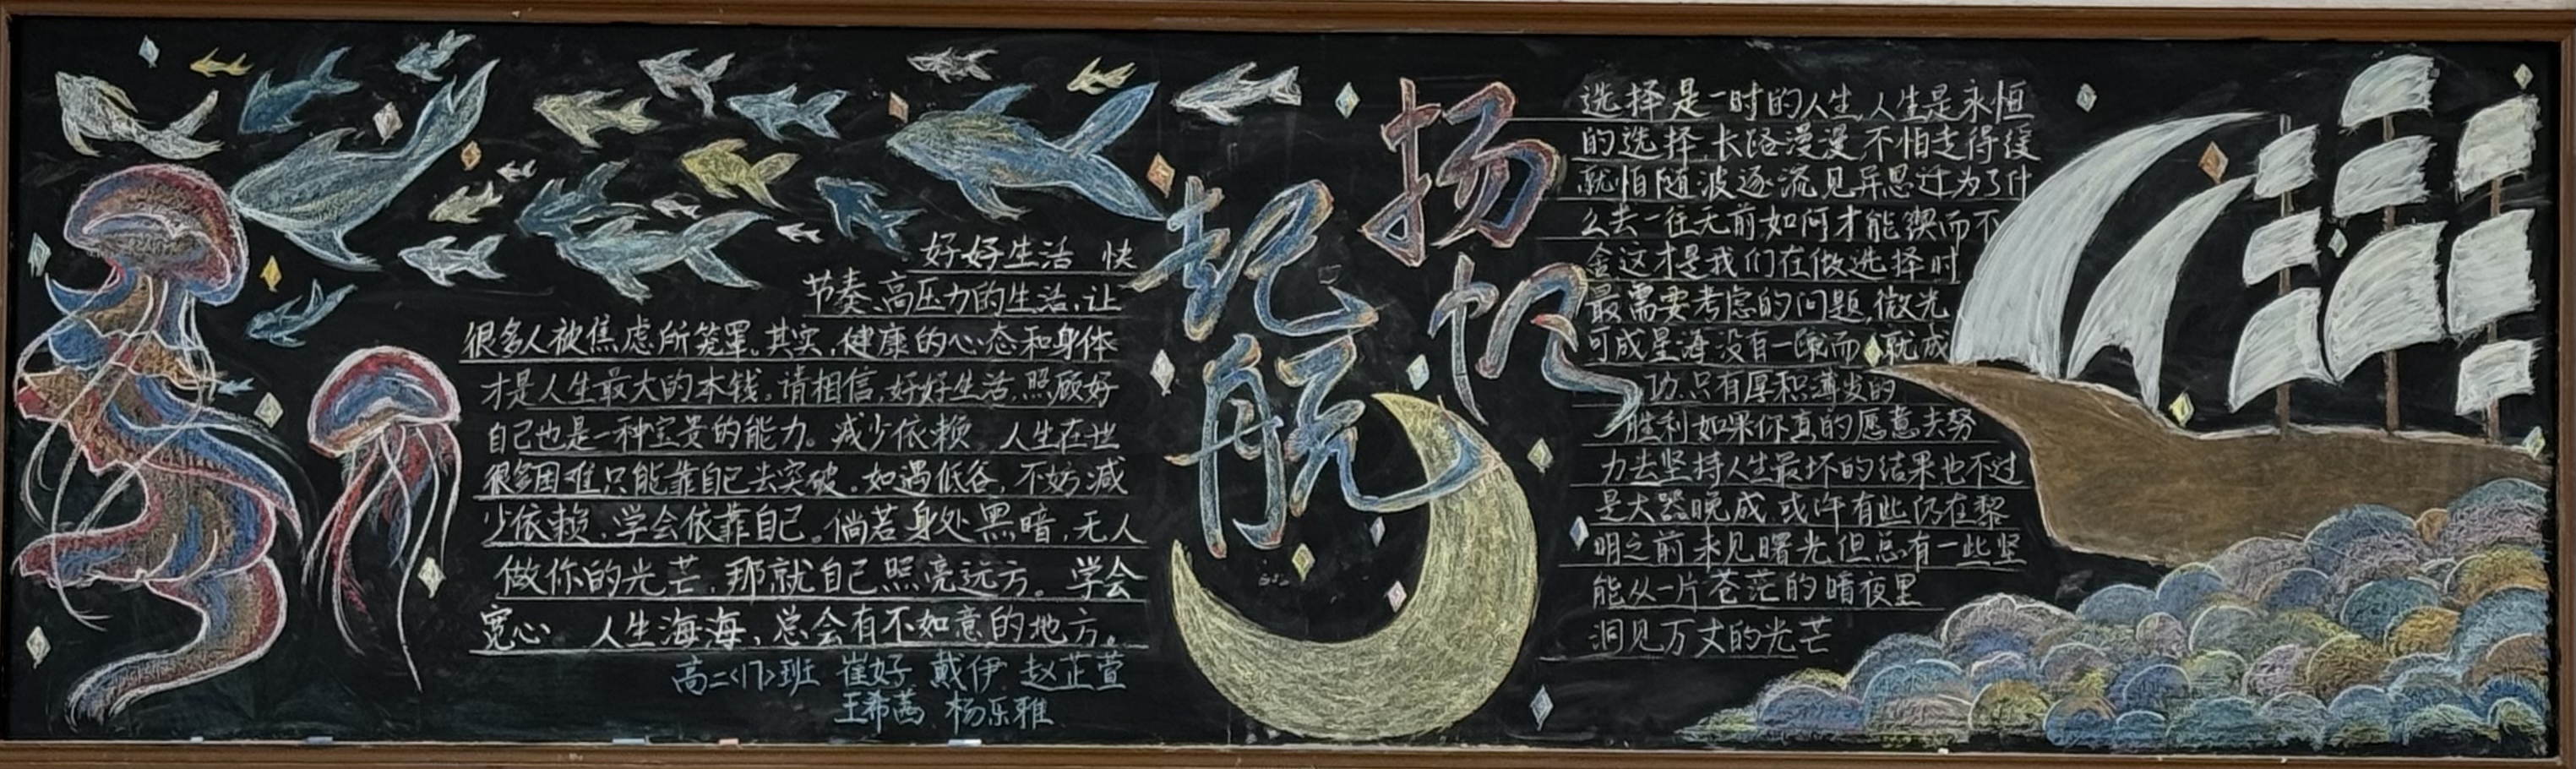 好好生活 快
节奏、高压力的生活,让
很多人被焦虑所笼罩。其实,健康的心态和身体
才是人生最大的本钱。请相信,好好生活,照顾好
自己也是一种宝贵的能力。减少依赖 人生在世
很多困难只能靠自己去突破。如遇低谷,不妨减
少依赖,学会依靠自己。倘若身处黑暗,无人
做你的光芒,那就自己照亮远方。学会
宽心 人生海海,总会有不如意的地方。
高二<17>班 崔好 戴伊 赵芷萱
王希茜 杨乐雅
扬帆
起航
选择是一时的人生,人生是永恒
的选择,长路漫漫,不怕走得缓
就怕随波逐流见异思迁为了什
么去一往无前如何才能锲而不
舍这才是我们在做选择时
最需要考虑的问题,微光
可成星海没有一蹴而就成
功,只有厚积薄发的
胜利如果你真的愿意去努
力去坚持人生最坏的结果也不过
是大器晚成,或许有些仍在黎
明之前未见曙光,但总有一些坚
能从一片苍茫的暗夜里
洞见万丈的光芒